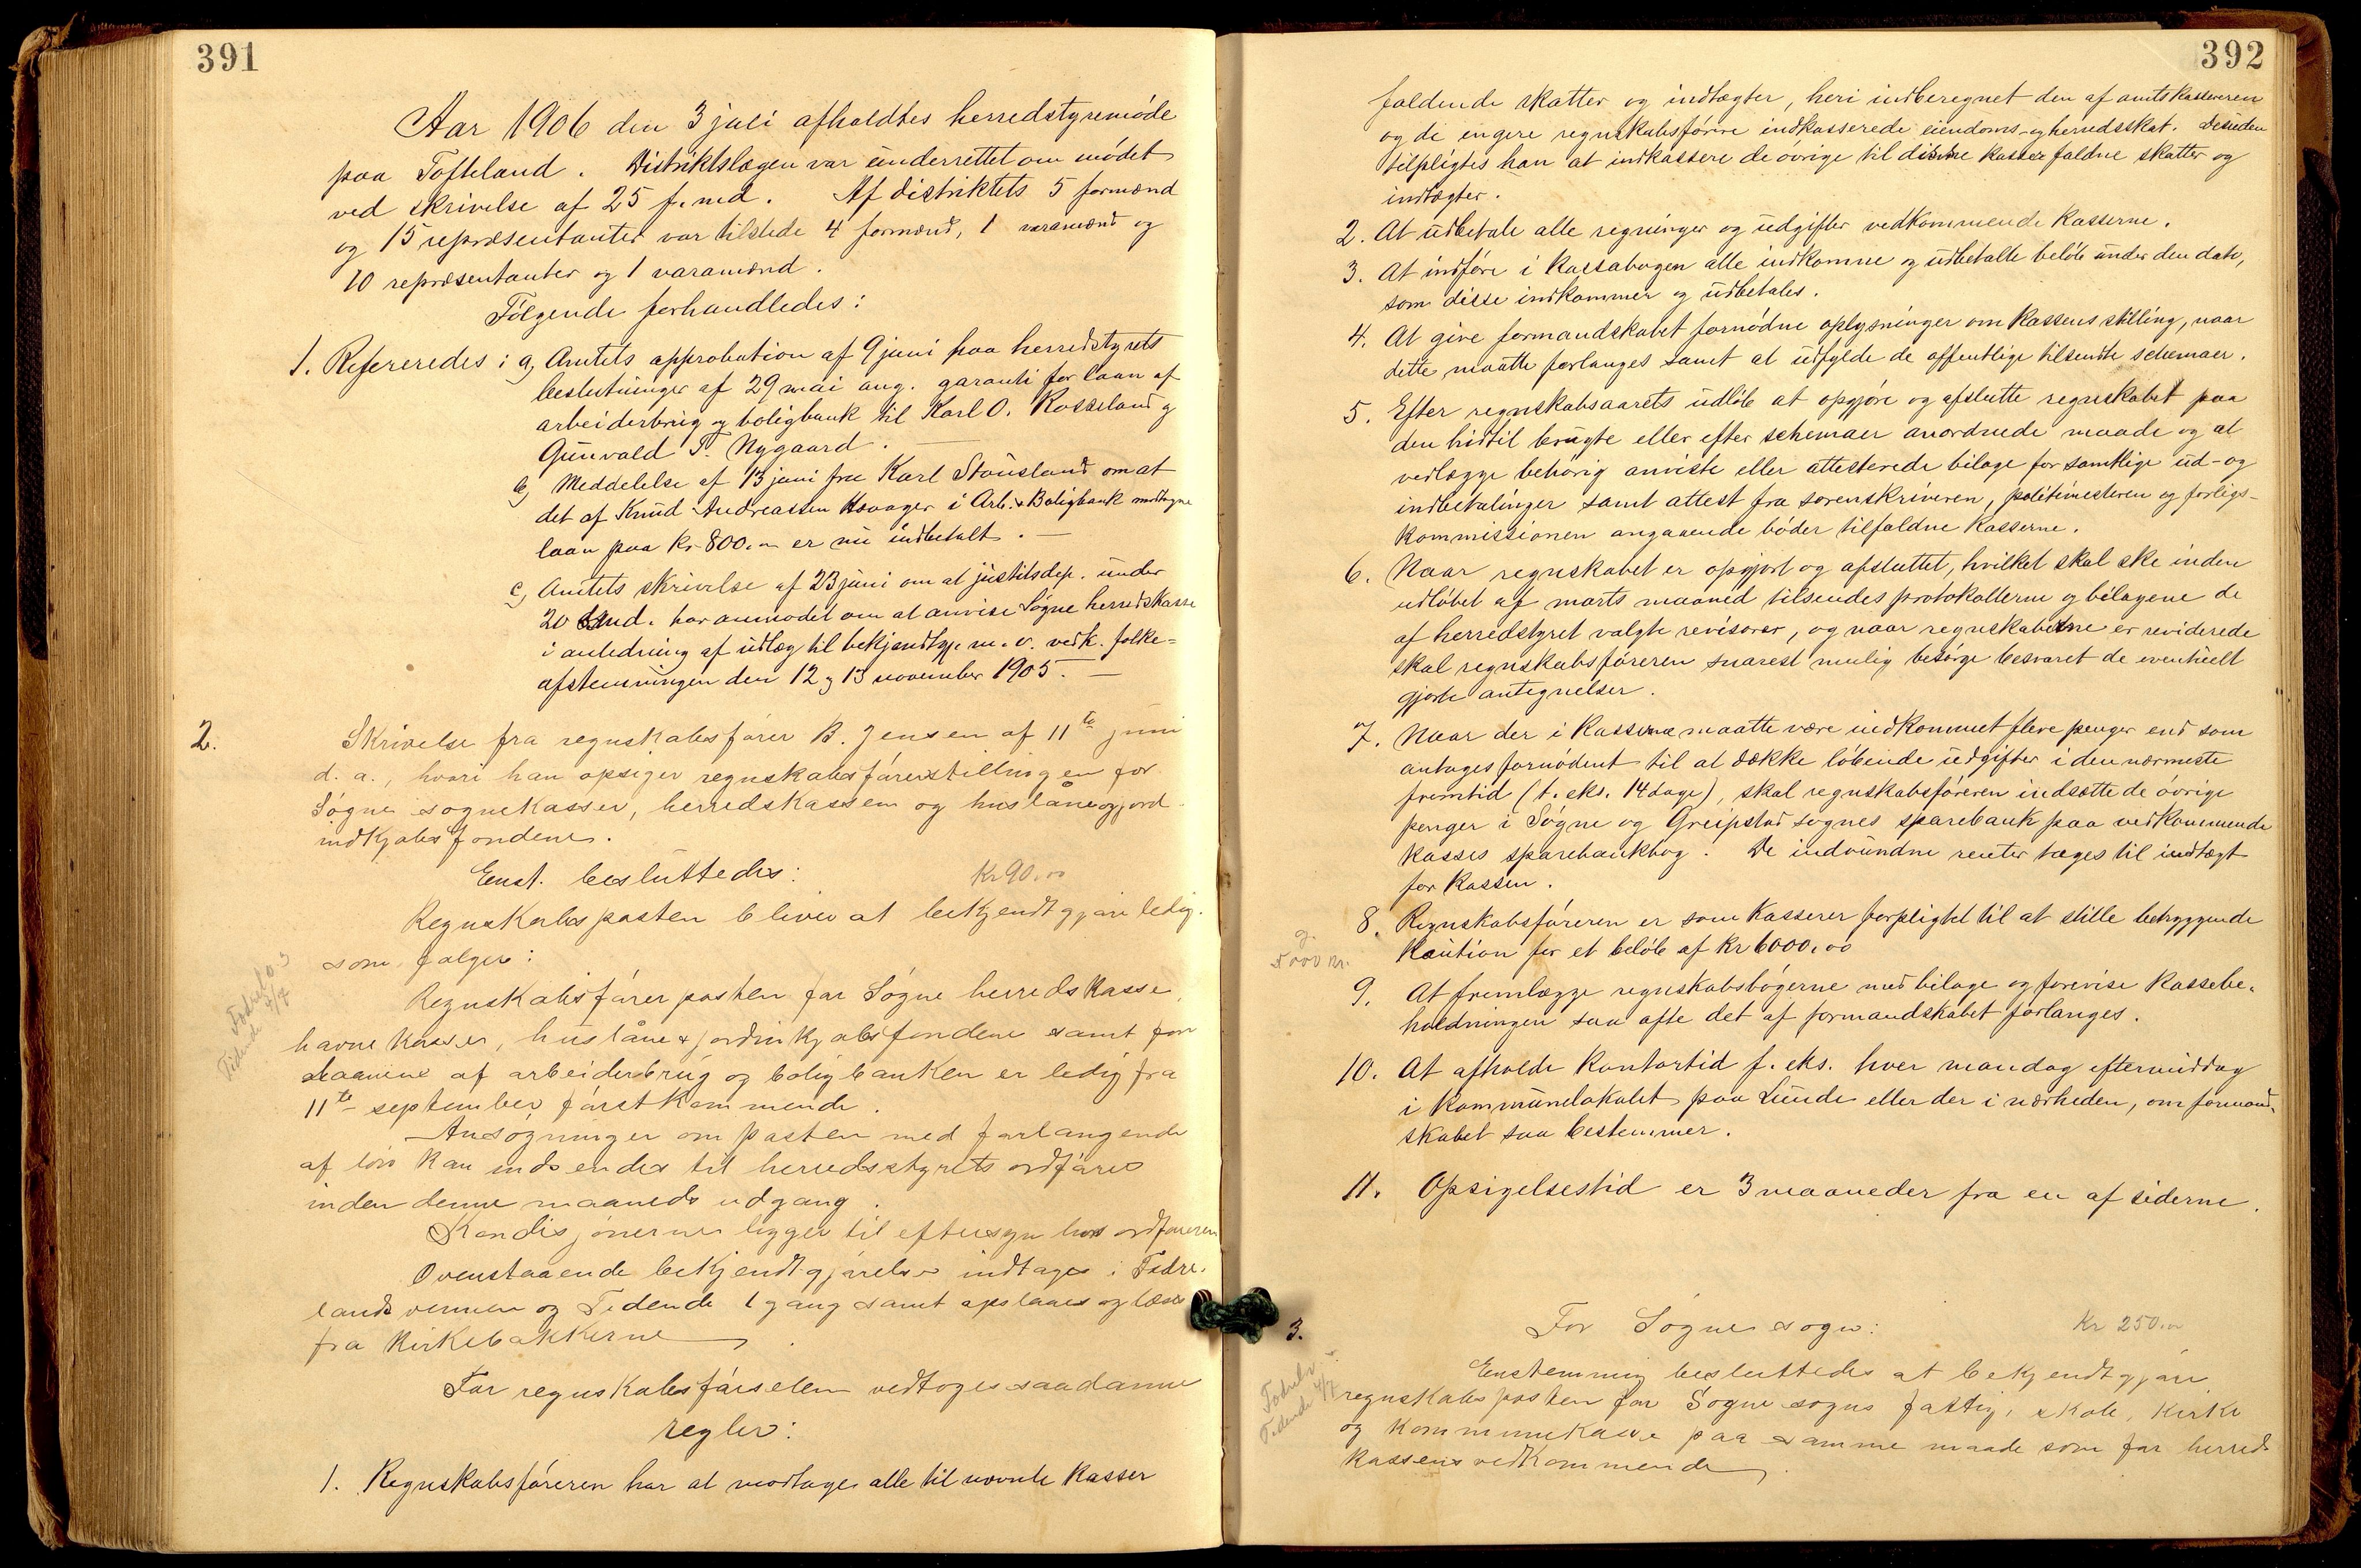 391
Aar 1906 den 3 juli afholdtes herredstyremöde
paa Tofteland. Distriktslægen var underrettet om mödet
ved skrivelse af 25 f. md. Af distriktets 5 formænd
og 15 repræsentanter var tilstede 4 formænd, 1 varamænd og
10 repræsentanter og 1 varamænd.
Fölgende forhandledes:
1. Refereredes: a, Amtets approbation af 9 juni paa herredstyrets
beslutninger af 29 mai ang. garanti for laan af
arbeiderbrug og boligbank til Karl O. Rosseland og
Gunvald T. Nygaard. —
b, Meddelelse af 13 juni fra Karl Stausland om at
det af Knud Andreassen i Arb. & Boligbank modtagne
laan paa Kr 800.00 er nu indbetalt. —
c, Amtets skrivelse af 23 juni om at justitsdep. under
20 md. har anmodet om at anvise Sögne herredskasse
i anledning af udlæg til bekjendtgj. m. v. vedk. folke=
afstemningen den 12 og 13 november 1905. —
2.
Skrivelse fra regnskabsförer B. Jensen af 11te juni
d. a., hvori han opsiger regnskabsförerstillingen for
Sögne sognekasser, herredskassen og huslåne og jord-
indkjöbsfondene.
Enst. besluttedes: Kr 90.00
Regnskabsposten bliver at bekjendtgjöre ledig.
som fölger:
Fædrel. o. s
Tidende 4/7
Regnskabsförerposten for Sögne herredskasse,
havnekasser, huslåne & jordinkjöbsfondene samt for
laanene af arbeiderbrug og boligbanken er ledig fra
11te september förstkommende.
Ansögninger om posten med forlangende
af lön kan indsendes til herredsstyrets ordförer
inden denne maaneds udgang.
Kondisjonerne ligger til eftersyn hos ordföreren
Ovenstaaende bekjendtgjörelse indtages i Fædre-
landsvennen og Tidende 1 gang samt opslaaes og læses
fra Kirkebakkerne.
For regnskabsförselen vedtoges saadanne
regler:
1. Regnskabsföreren har at modtage alle til nævnte Kasser
392
faldende skatter og indtægter, heri indberegnet den af amtskassereren
og de engere regnskabsförere indkasserede eiendoms- og herredsskat. Desuden
tilpligtes han at indkassere de övrige til disse kasser faldne skatter og
indtægter.
2. At udbetale alle regninger og udgifter vedkommende Kasserne.
3. At indföre i Kassabogen alle indkomne og udbetalte belöb under den dato,
som disse indkommer og udbetales.
4. At give formandskabet fornödne oplysninger om Kassens stilling, naar
dette maatte forlanges samt at udfylde de offentlige tilsendte schemaer.
5. Efter regnskabsaarets udlöb at opgjöre og afslutte regnskabet paa
den hidtil brugte eller efter schemaer anordnede maade og at
vedlægge behörig anviste eller attesterede bilage for samtlige ud- og
indbetalinger samt attest fra sorenskriveren, politimesteren og forligs-
kommissionen angaaende böder tilfaldne Kasserne.
6. Naar regnskabet er opgjort og afsluttet, hvilket skal ske inden
udlöbet af marts maaned tilsendes protokollerne og bilagene de
af herredstyret valgte revisorer, og naar regnskaberne er reviderede
skal regnskabsföreren snarest mulig besörge besvaret de eventuelt
gjorte antegnelser.
7. Naar der i Kasserne maatte være indkommet flere penger end som
antages fornödent til at dække löbende udgifter i den nærmeste
fremtid (t. eks. 14 dage), skal regnskabsföreren indsætte de övrige
penger i Sögne og Greipstad sognes sparebank paa vedkommende
kasses sparebankbog. De indvundne renter tages til indtægt
for Kassen.
8. Regnskabsföreren er som Kasserer forpligtet til at stille betryggende
Kaution for et belöb af Kr 6000.00
5000 kr.
9. At fremlægge regnskabsbögerne med bilage og forevise Kassebe-
holdningen saa ofte det af formandskabet forlanges.
10. At afholde Kontortid f. eks. hver mandag eftermiddag
i Kommunelokalet paa Lunde eller der i nærheden, om formand-
skabet saa bestemmer.
11. Opsigelsestid er 3 maaneder fra en af siderne.
3.
For Sögne sogn: Kr 250.00
Fædrel. o. s.
Tidende 4/7
Enstemmig besluttedes at bekjendtgjöre
regnskabsposten for Sögne sogns fattig, skole, Kirke
og Kommunekasse paa samme maade som for herreds
kassens vedkommende.